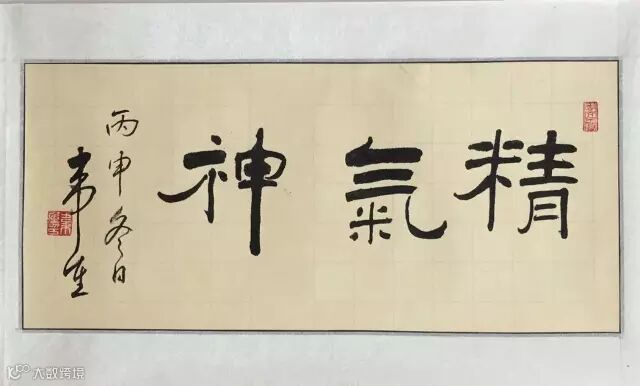 精氣神
丙申冬日
韦生
大数跨境